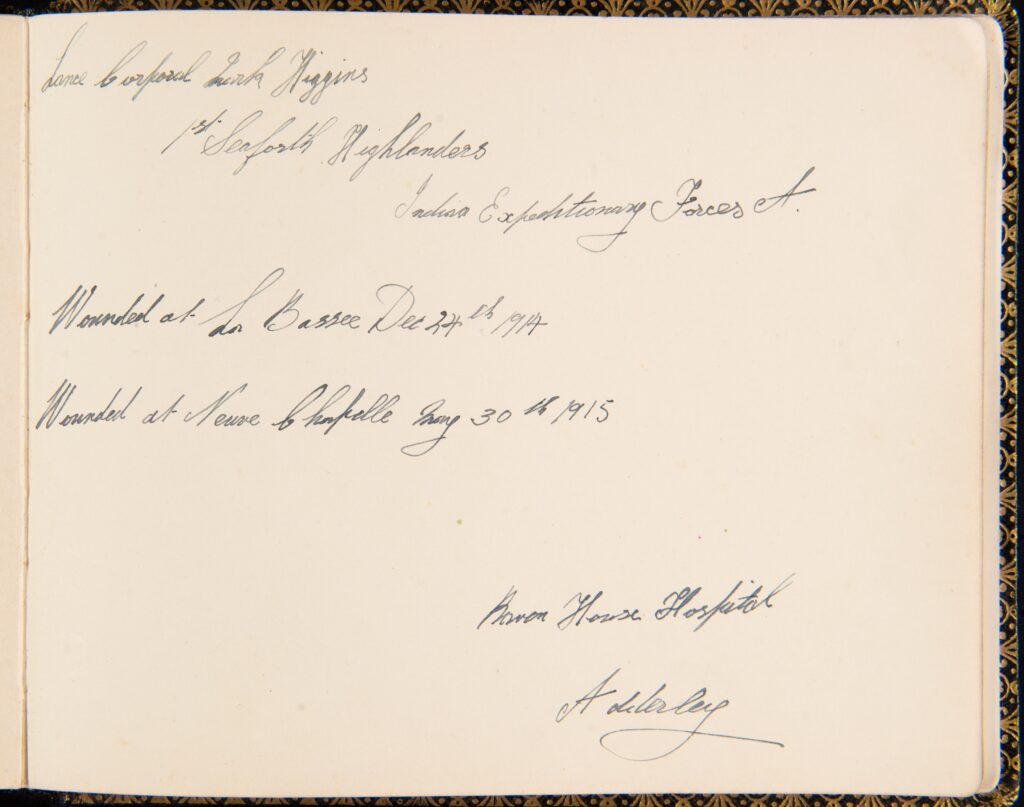 Lance Corporal Mark Higgins
1st. Seaforth Highlanders
Indian Expeditionary Forces A.
Wounded at La Bassee Dec 24th 1914
Wounded at Neuve Chapelle May 30th 1915
House Hospital
Adderley